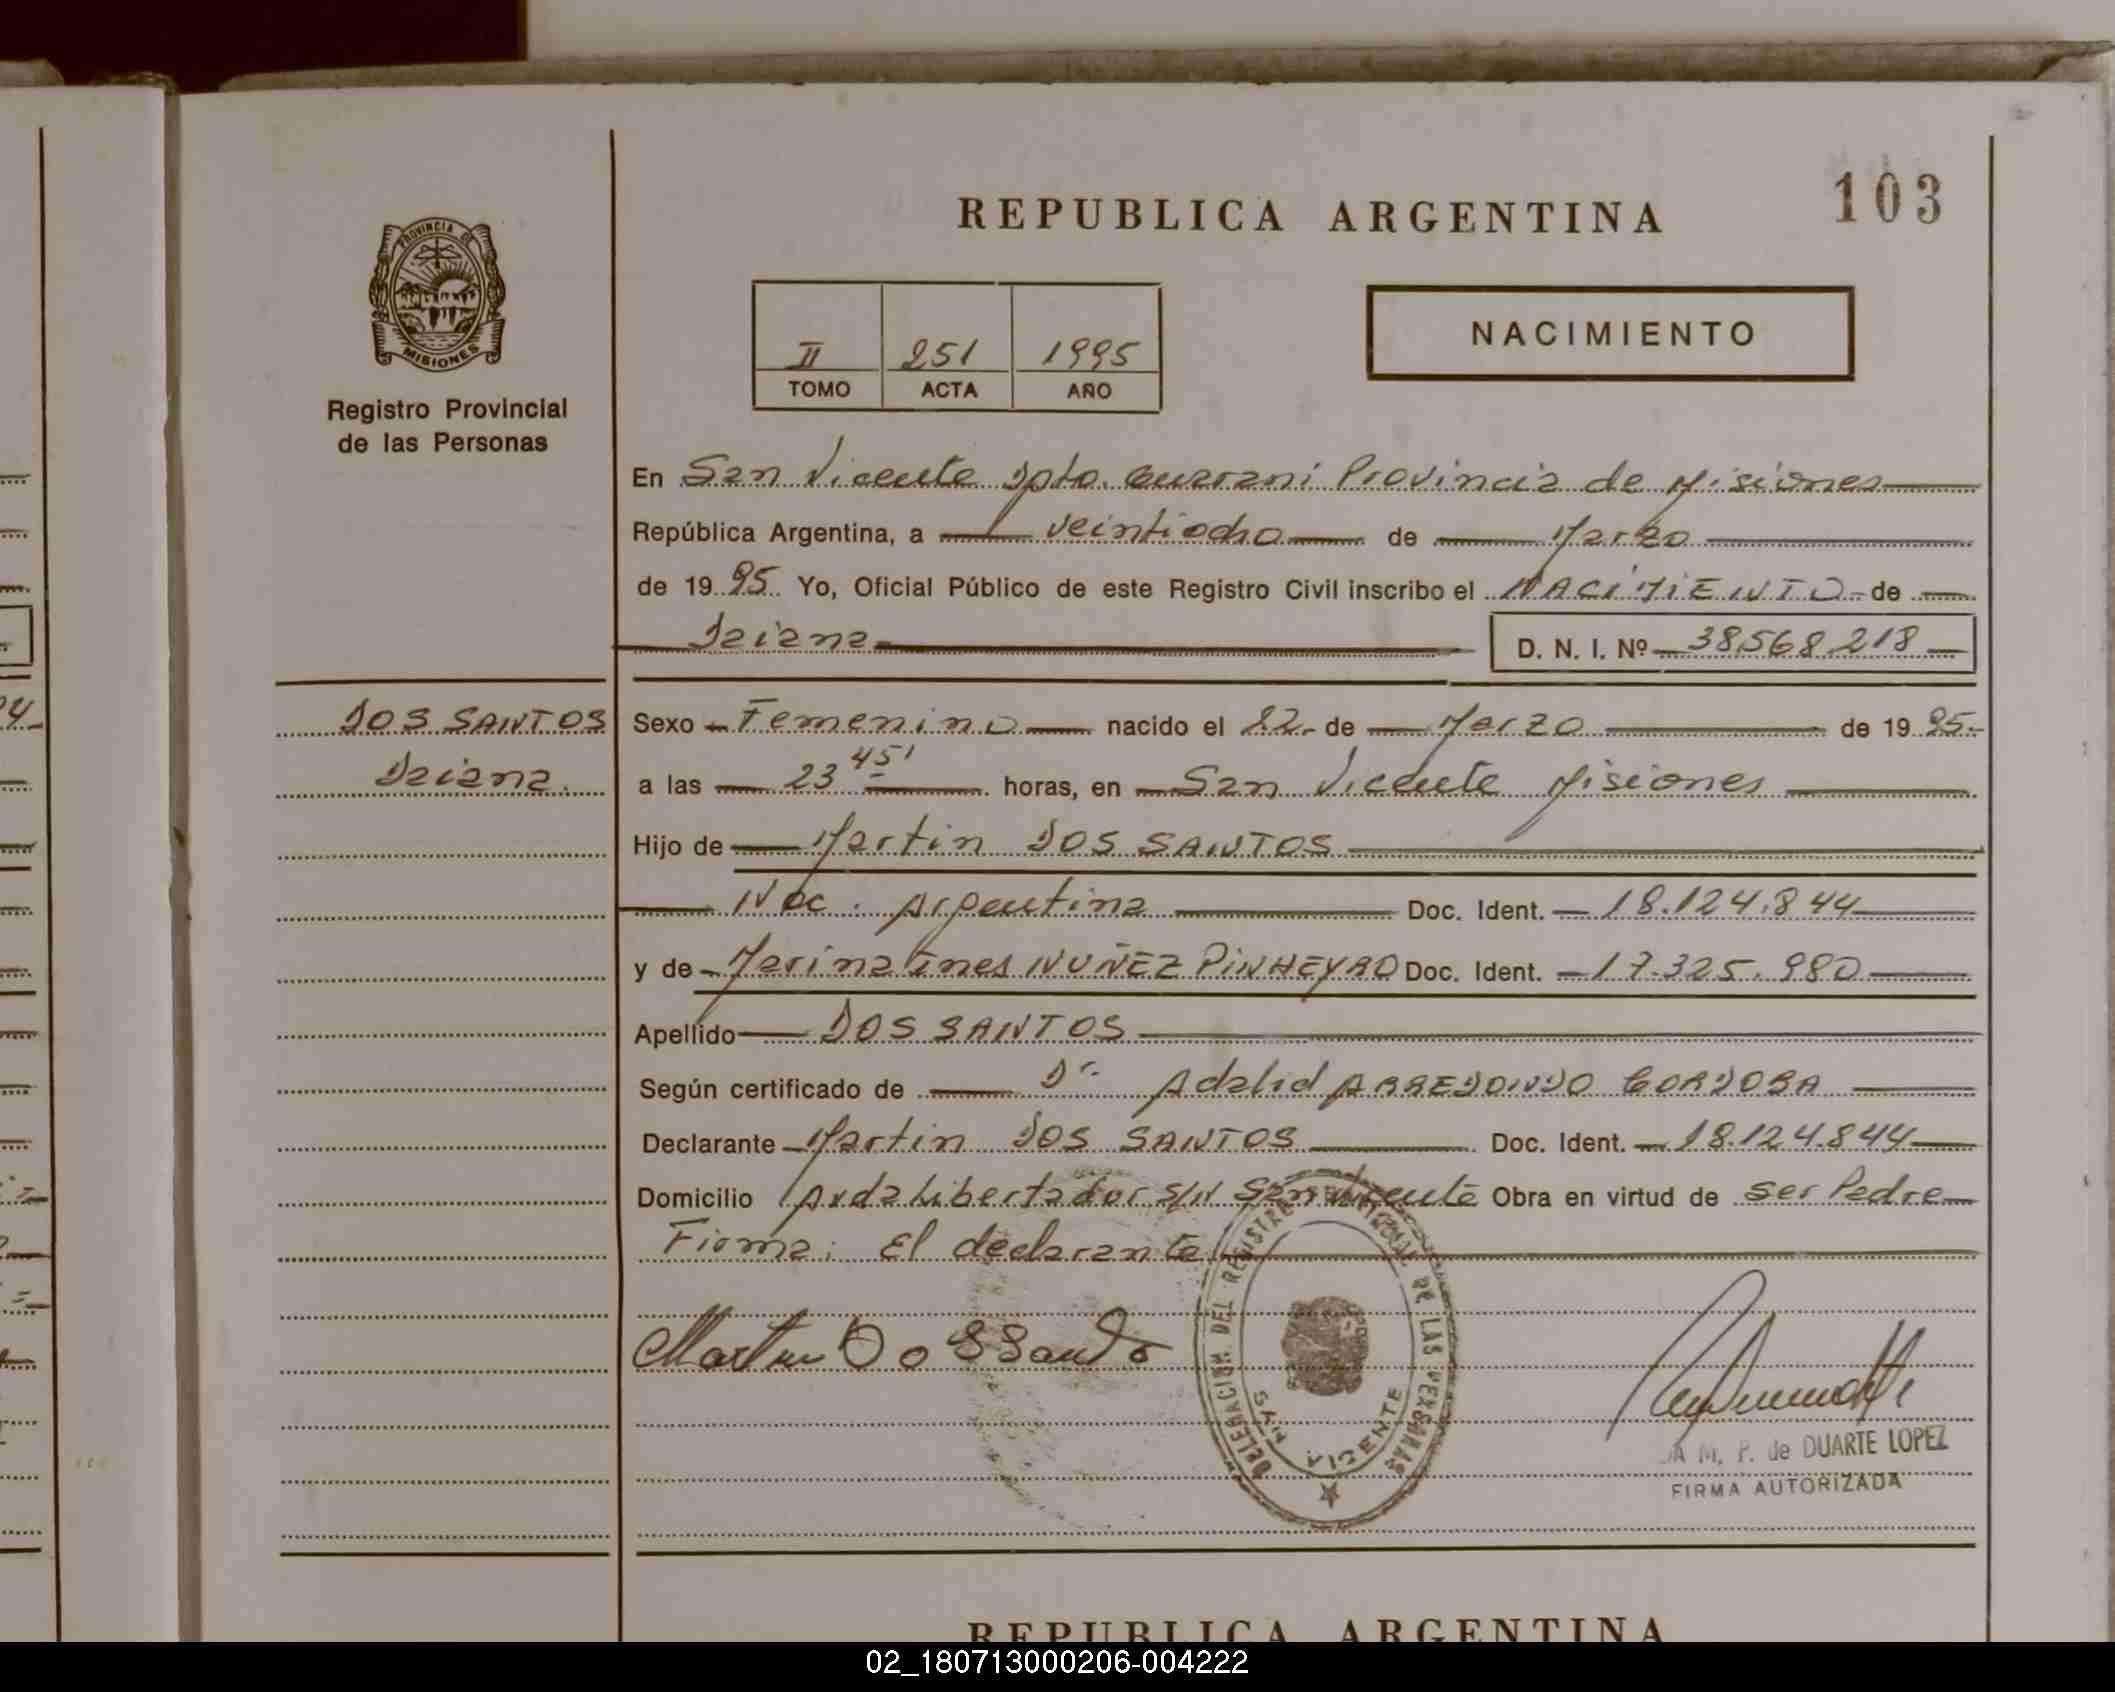 REPUBLICA ARGENTINA
103
PROVINCIA DE
MISIONES
Registro Provincial
de las Personas
II 251 1995
TOMO ACTA AÑO
NACIMIENTO
En San Vicente Dpto. Guarani Provincia de Misiones
República Argentina, a veintiocho de Marzo
de 19 95 Yo, Oficial Público de este Registro Civil inscribo el NACIMIENTO de
Daiana
D. N. I. Nº 38.568.218
DOS SANTOS
Daiana.
Sexo Femenino nacido el 22 de Marzo de 19 95
a las 23 45' horas, en San Vicente Misiones
Hijo de Martin DOS SANTOS
Nac. Argentina Doc. Ident. 18.124.844
y de Marina Ines NUÑEZ PINHEYRO Doc. Ident. 17.325.980
Apellido DOS SANTOS
Según certificado de Dr. Adalid ARREDONDO CORDOBA
Declarante Martin DOS SANTOS Doc. Ident. 18.124.844
Domicilio Avda Libertador S/N San Vicente Obra en virtud de ser Padre
Firma: El declarante
Martin Dos Santos
DELEGACION DEL REGISTRO PROVINCIAL DE LAS PERSONAS
SAN VICENTE
M. P. de DUARTE LOPEZ
FIRMA AUTORIZADA
REPUBLICA ARGENTINA
02_180713000206-004222